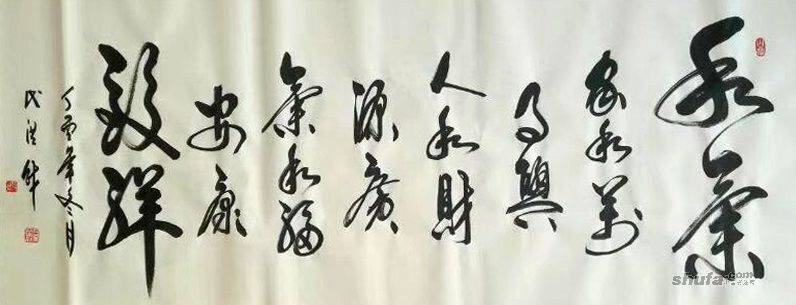 和氣
家和萬
事興
人和財
源廣
氣和福
安康
致祥
丁酉年冬月
shufa.com